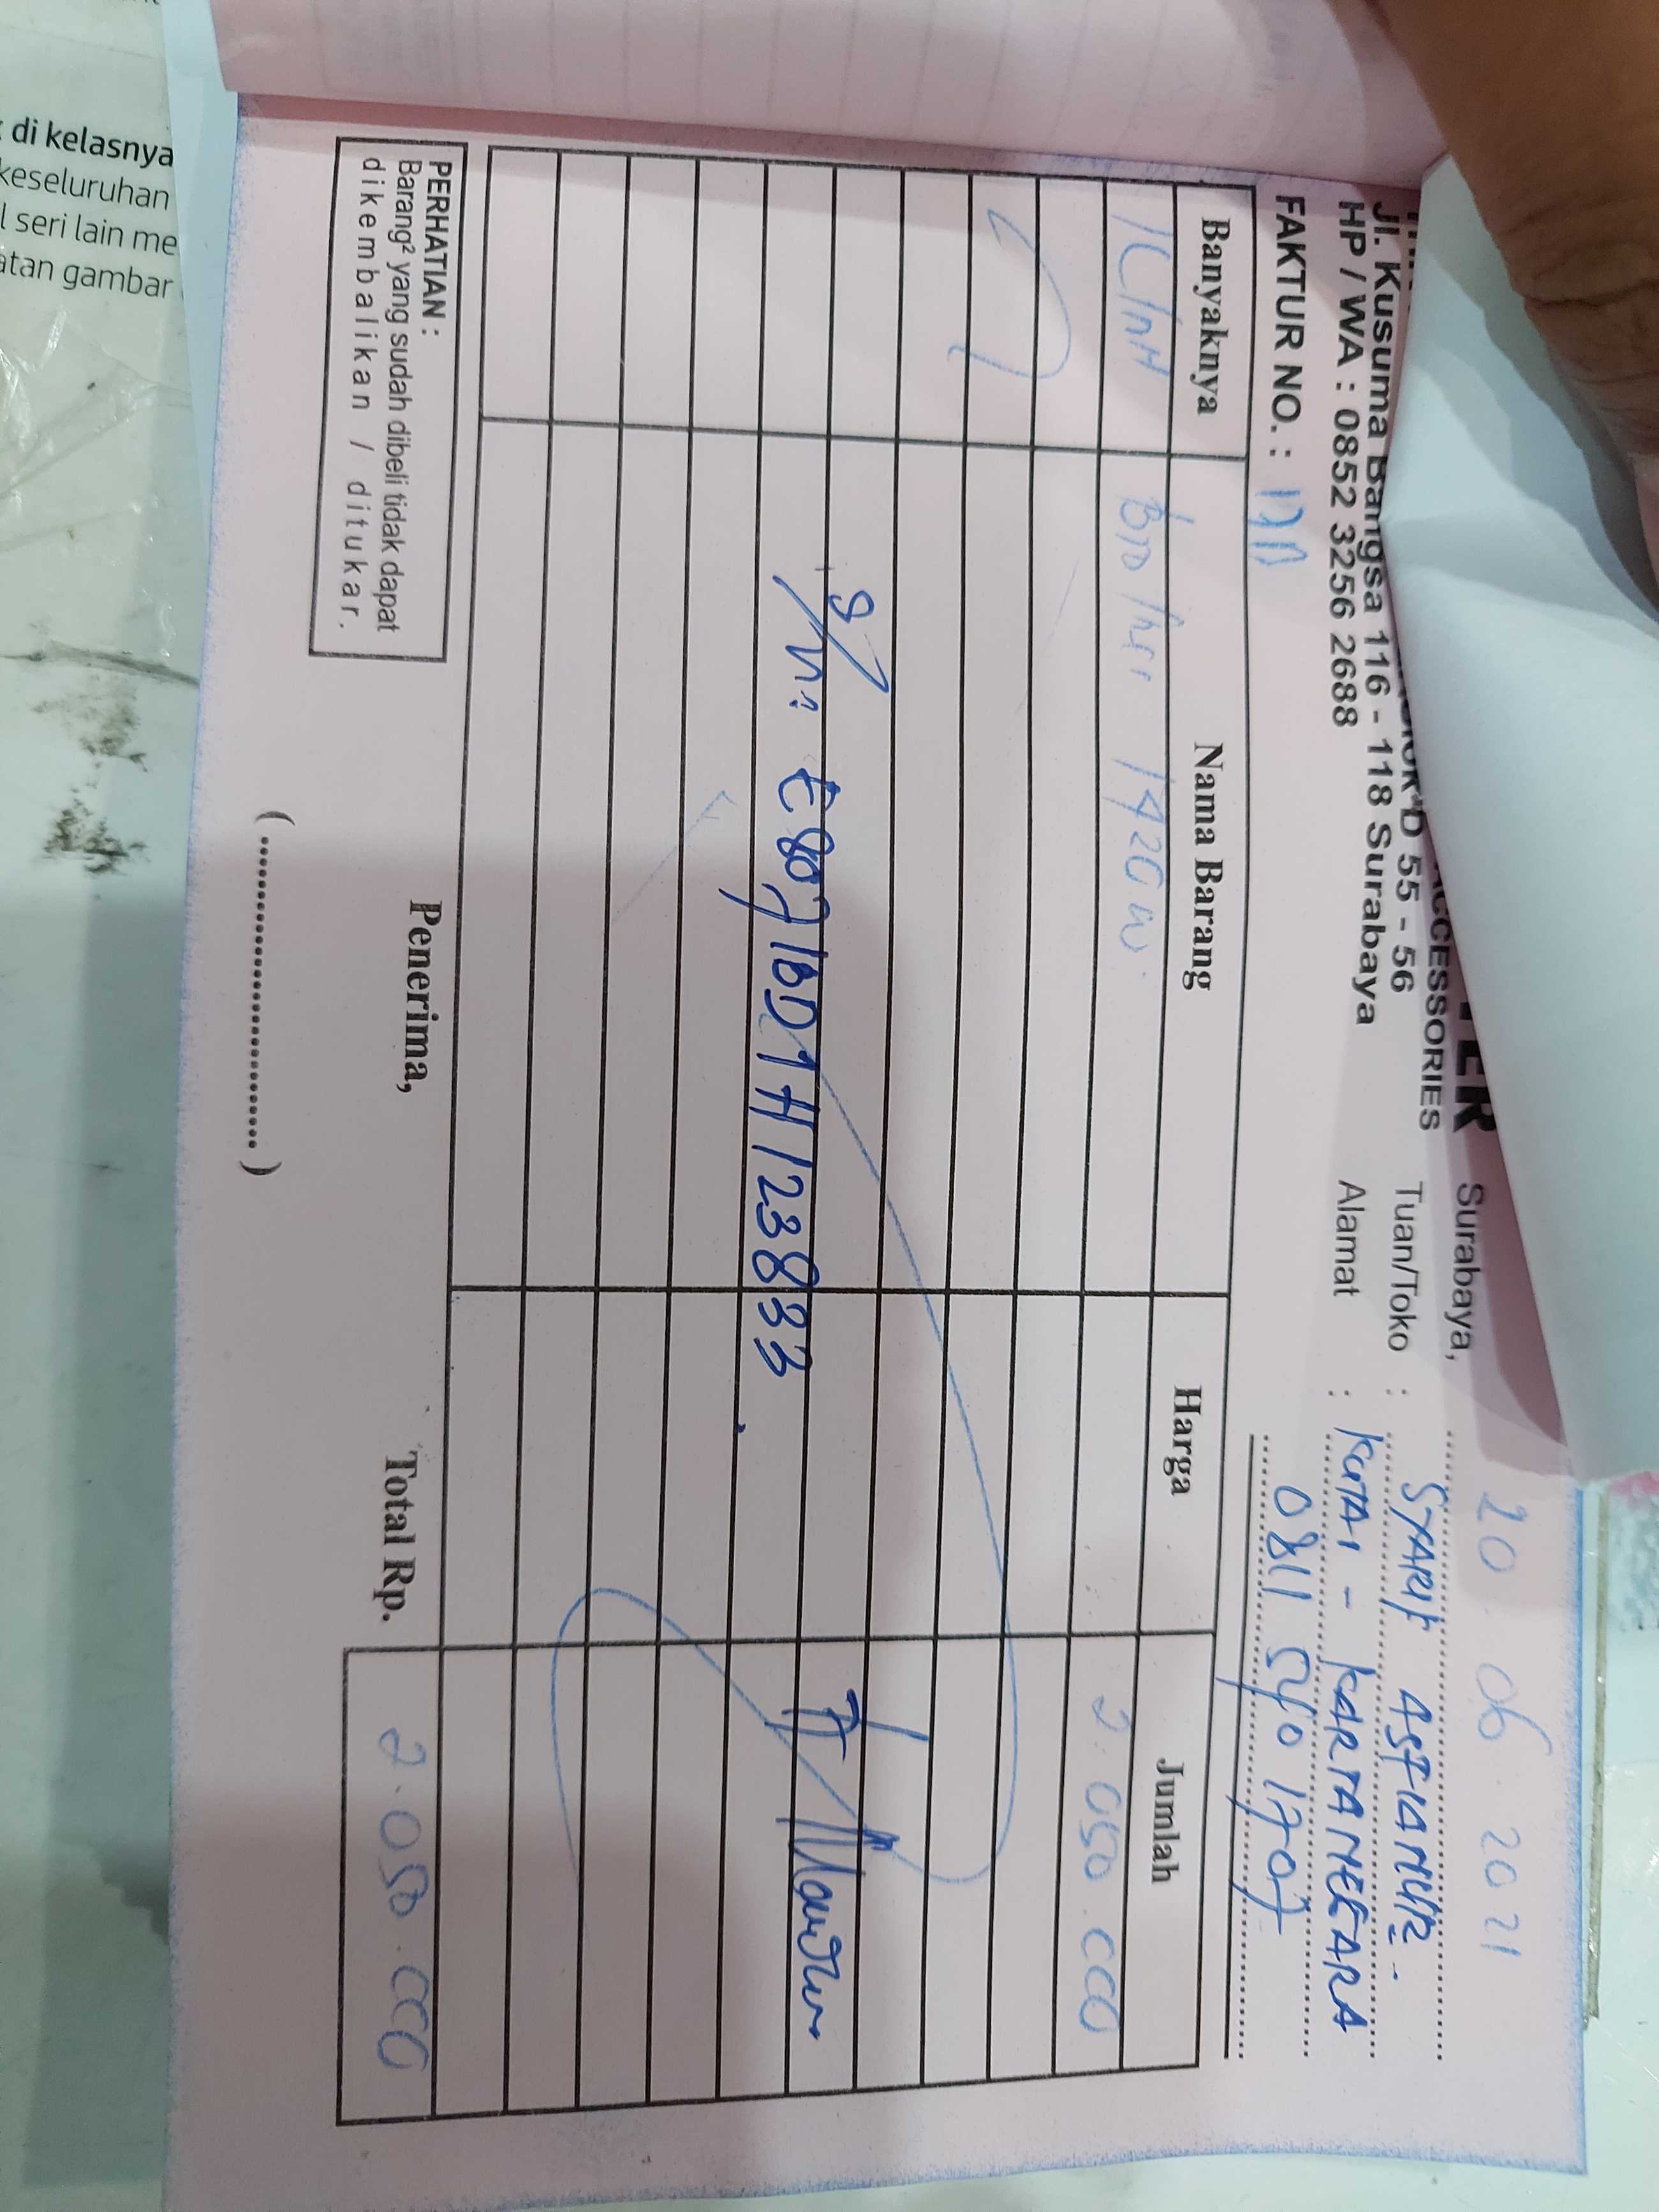 TER
ACCESSORIES
D 55 - 56
Jl. Kusuma Bangsa 116 - 118 Surabaya
HP / WA : 0852 3256 2688
FAKTUR NO. :
Surabaya, 20 06 2021
Tuan/Toko : SYARIF ASFIANUR.
Alamat : KUTAI - KARTANEGARA
0811 540 1707
Banyaknya Nama Barang Harga Jumlah
1 Brother 1420 W. 2.050.000
S/N: E80716D1H123883
PERHATIAN :
Barang² yang sudah dibeli tidak dapat
dikembalikan / ditukar.
Penerima,
(..............................)
Total Rp. 2.050.000
di kelasnya
keseluruhan
l seri lain me
atan gambar